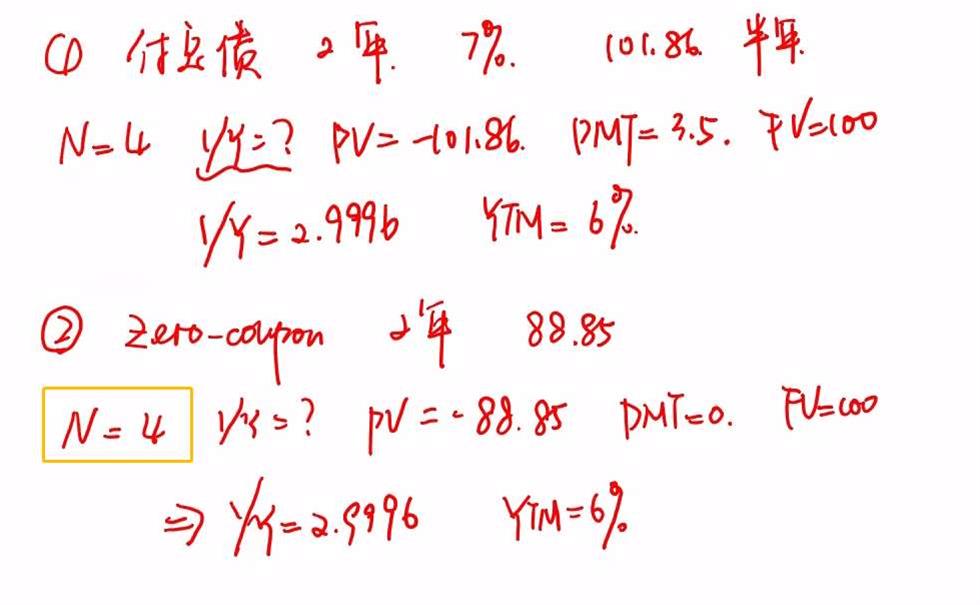 ① 付息债 2年. 7%. 101.86. 半年.
N=4 I/Y=? PV=-101.86. PMT=3.5. FV=100
I/Y=2.9996 YTM=6%.
② Zero-coupon 2年 88.85
N=4 I/Y=? PV=-88.85 PMT=0. FV=100
⇒ I/Y=2.9996 YTM=6%